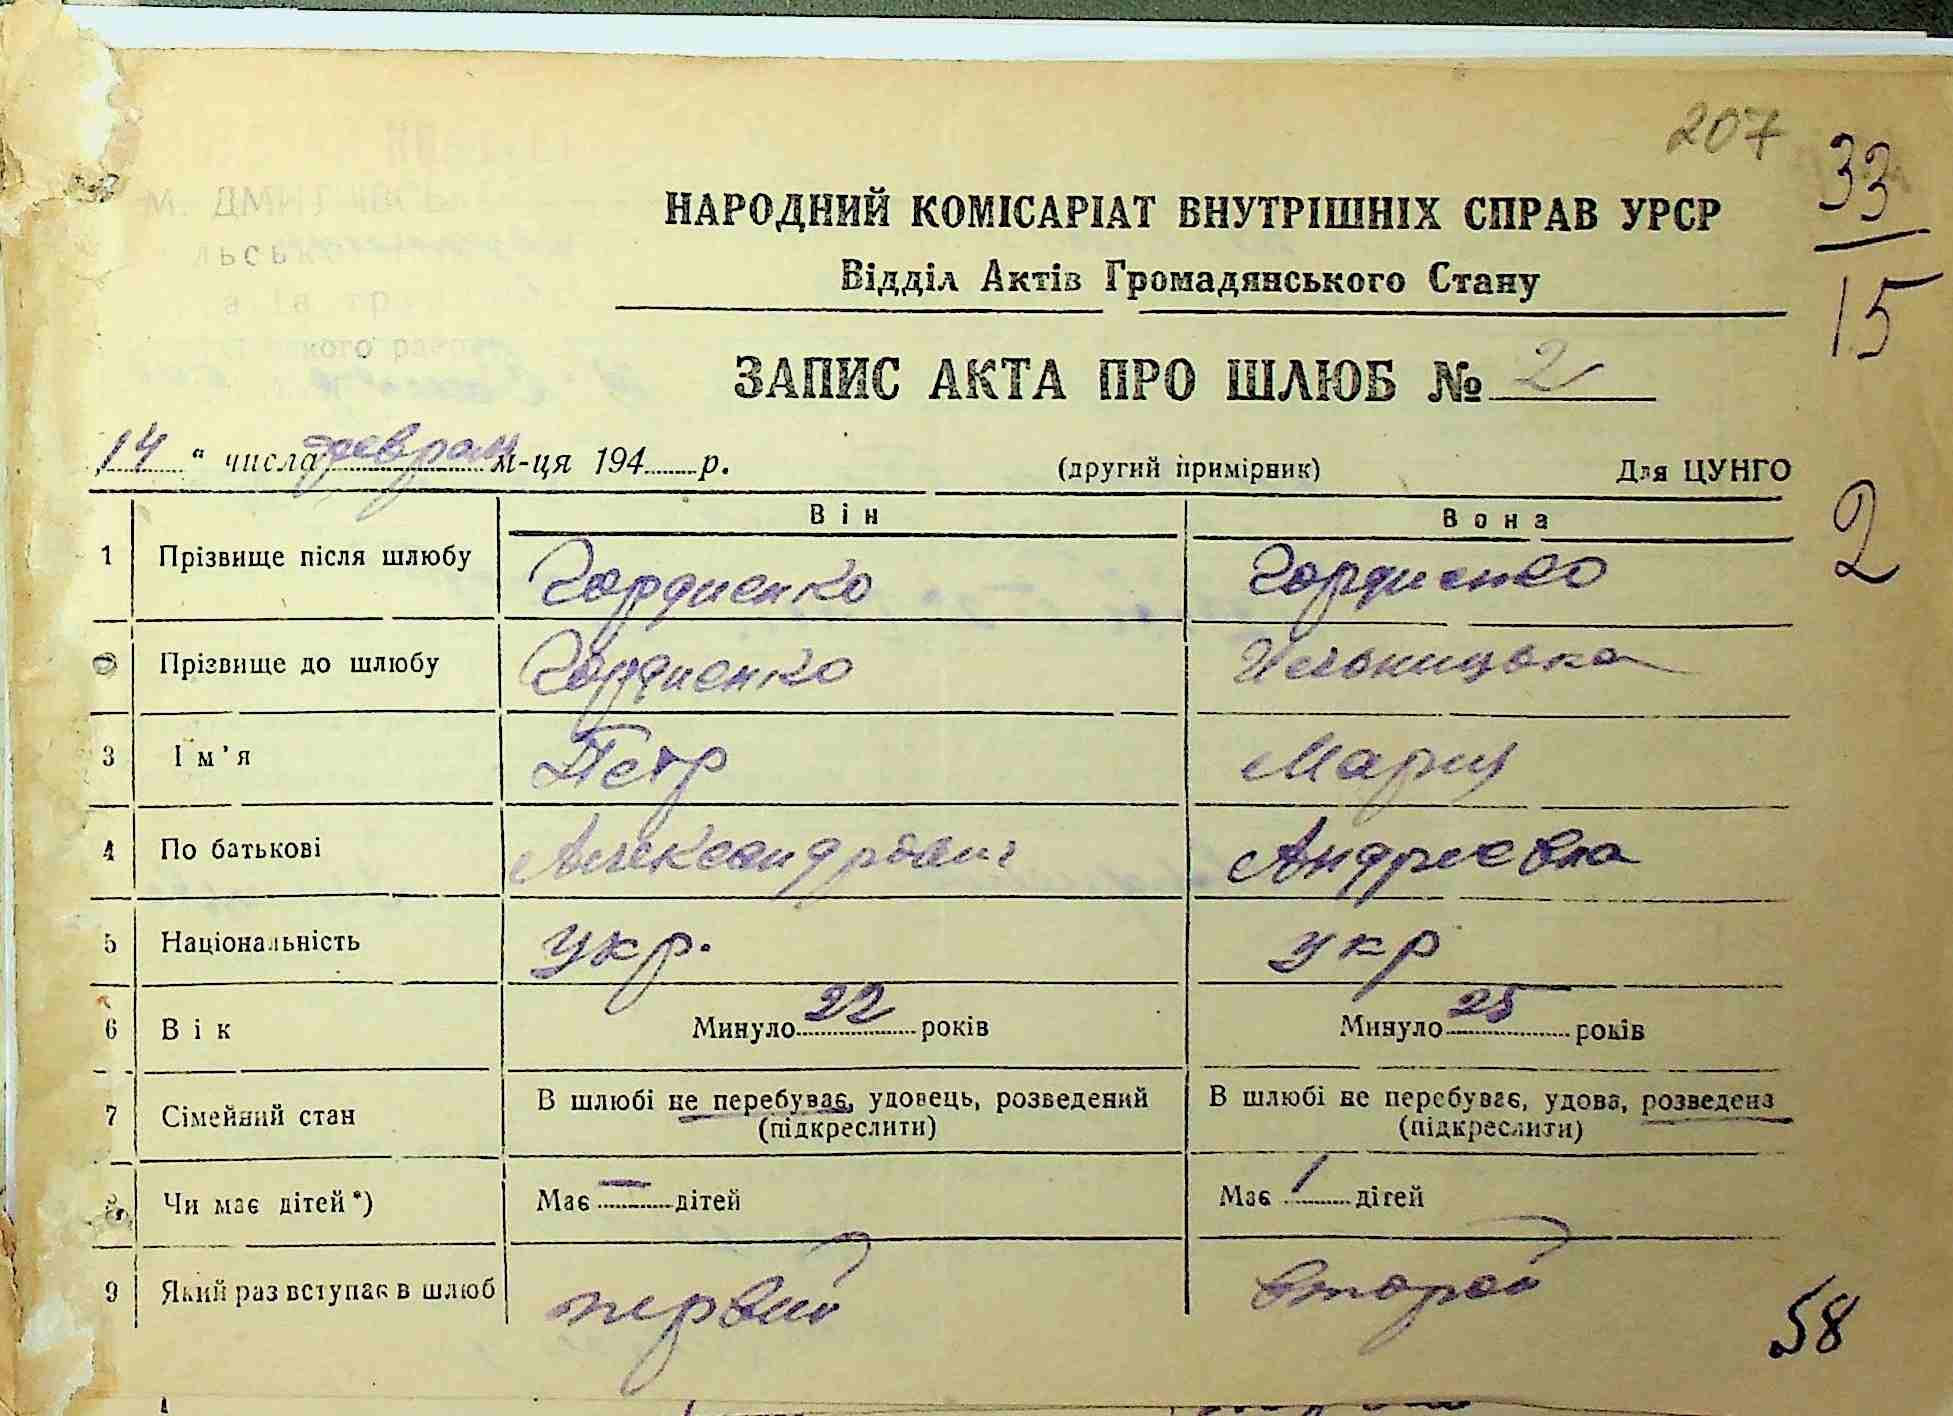 207
33
15
НАРОДНИЙ КОМІСАРІАТ ВНУТРІШНІХ СПРАВ УРСР
Відділ Актів Громадянського Стану
ЗАПИС АКТА ПРО ШЛЮБ № 2
14 " числа феврал м-ця 194 р. (другий примірник) Для ЦУНГО
2
Він Вона
1 Прізвище після шлюбу Гордиенко Гордиенко
Прізвище до шлюбу Гордиенко
3 Ім'я Петр Мария
4 По батькові Александрович Андреевна
5 Національність укр. укр
6 Вік Минуло 22 років Минуло 25 років
7 Сімейний стан В шлюбі не перебуває, удовець, розведений В шлюбі не перебуває, удова, розведена
(підкреслити) (підкреслити)
8 Чи має дітей*) Має — дітей Має 1 дітей
9 Який раз вступає в шлюб первий второй
58